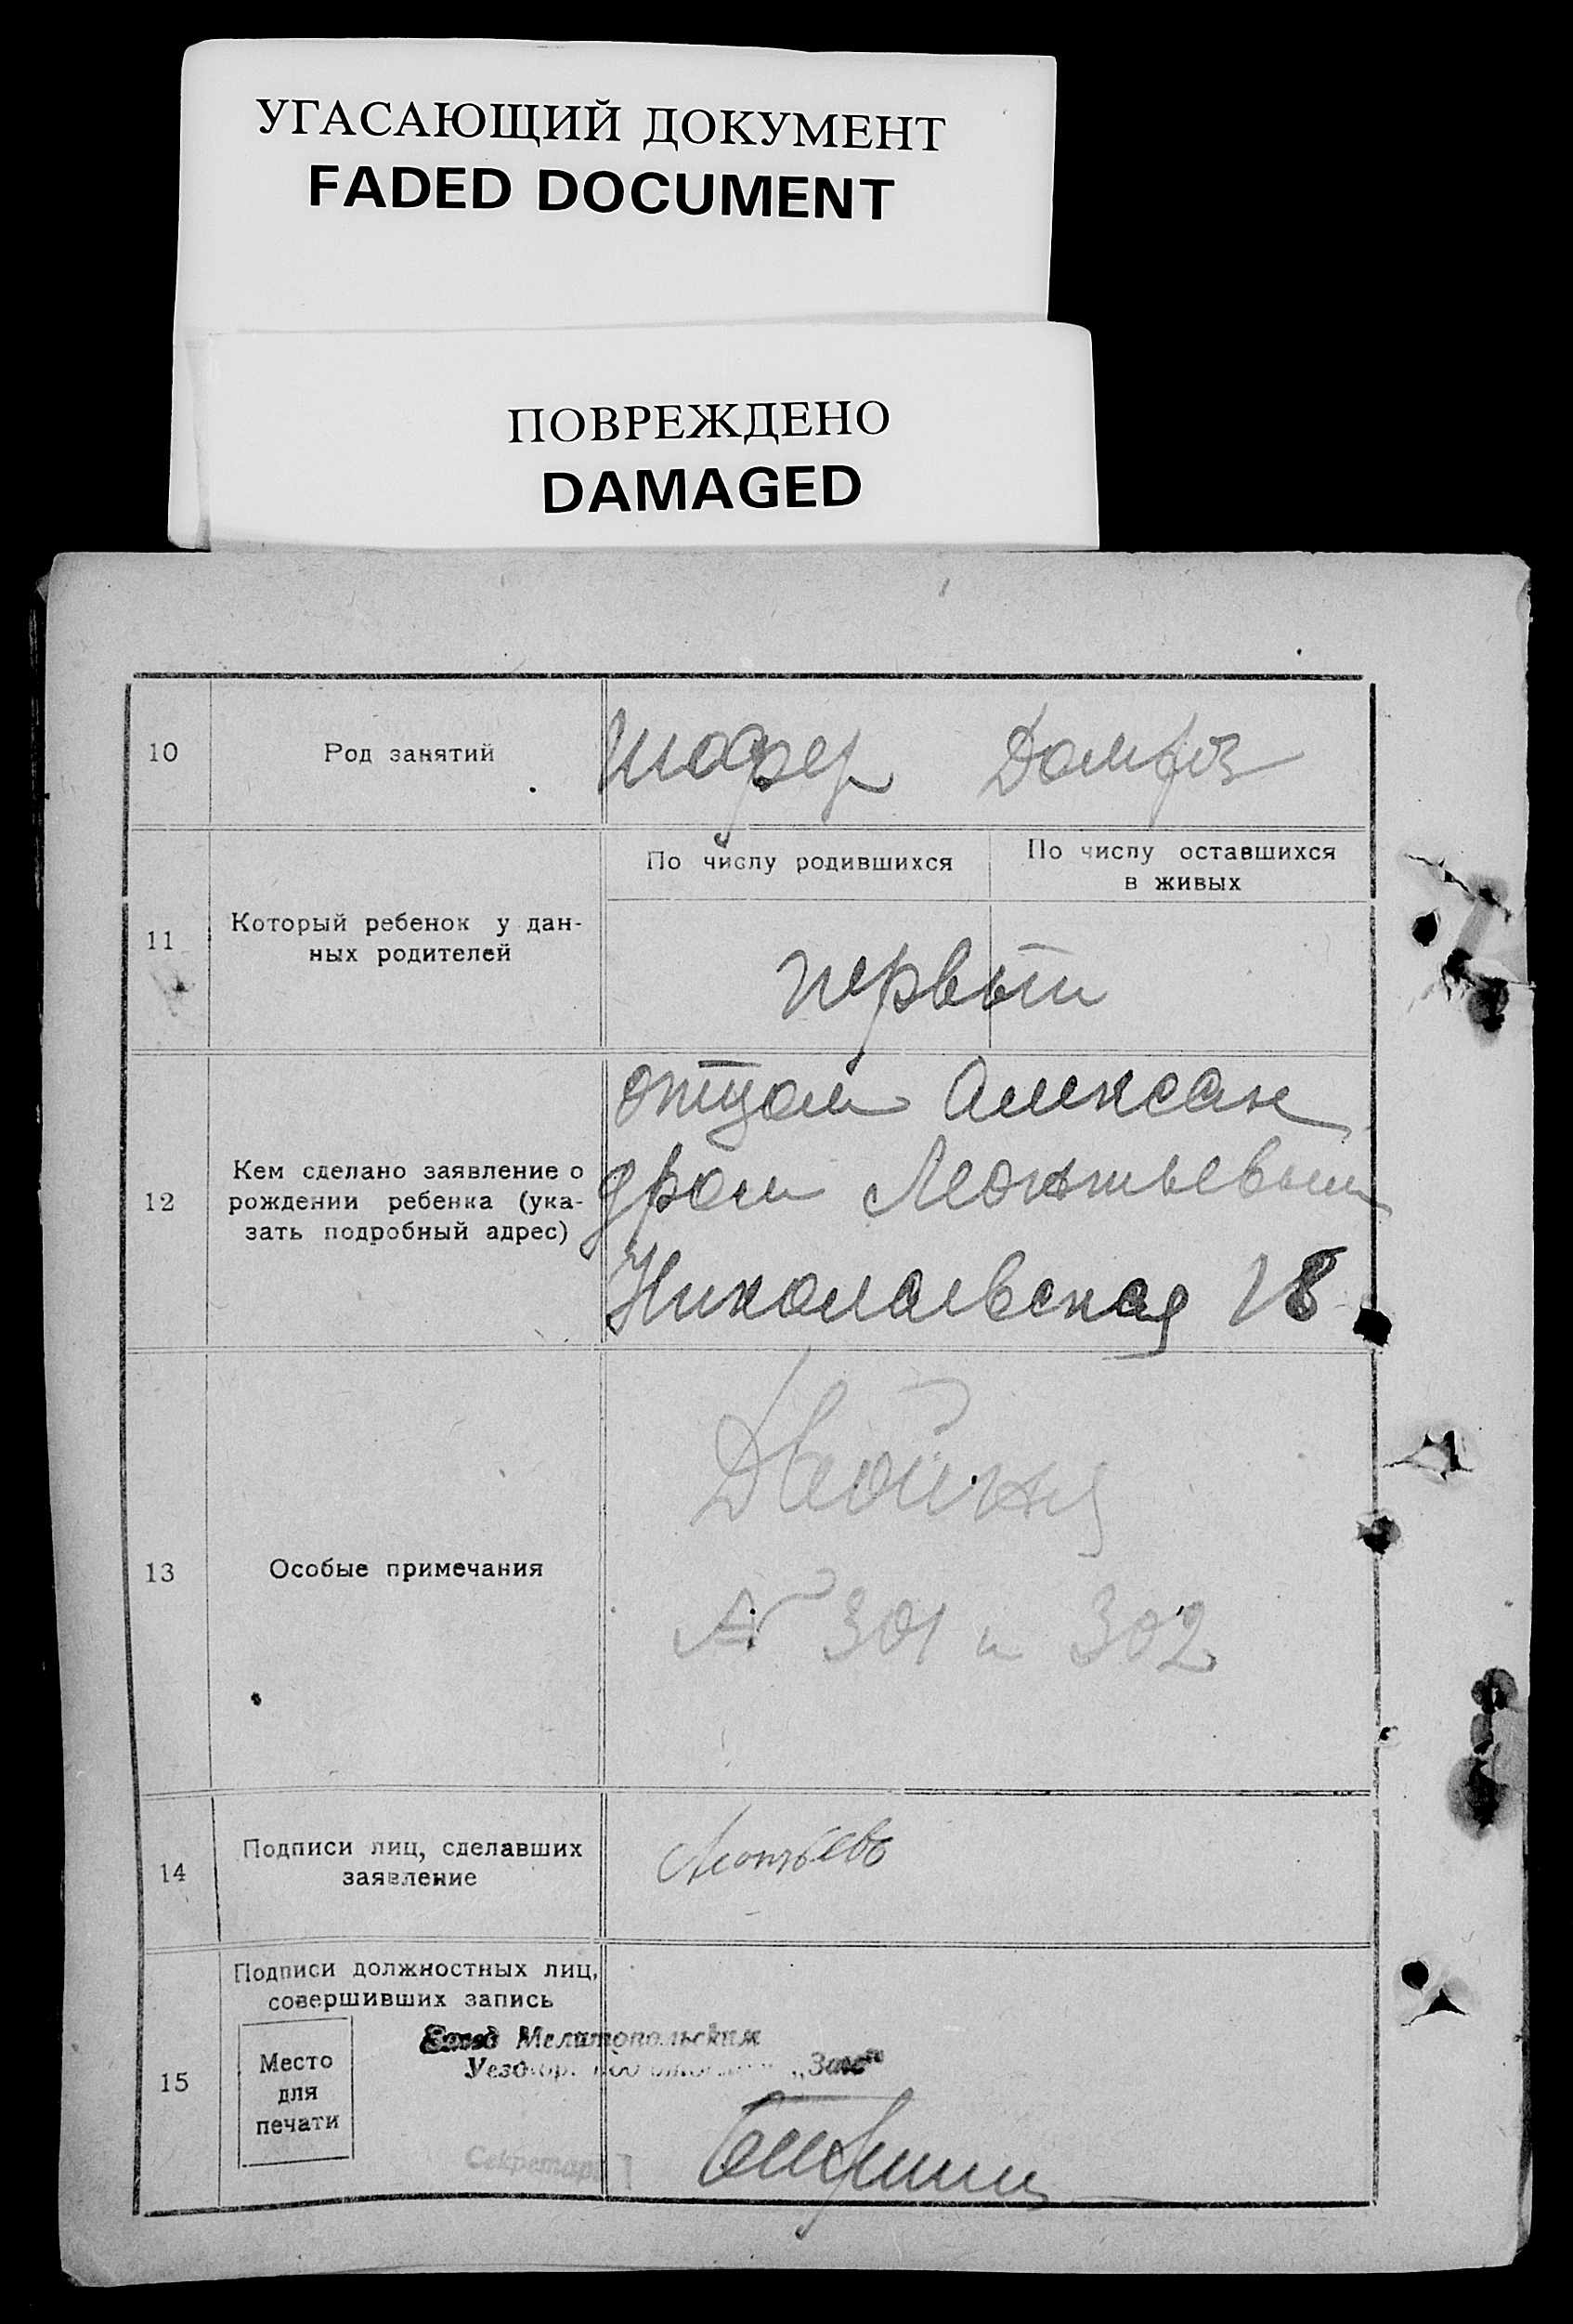 УГАСАЮЩИЙ ДОКУМЕНТ
FADED DOCUMENT
ПОВРЕЖДЕНО
DAMAGED
10 Род занятий шофер Домхоз
11 Который ребенок у дан-
ных родителей
По числу родившихся
По числу оставшихся
в живых
первый
12 Кем сделано заявление о
рождении ребенка (ука-
зать подробный адрес)
отцом Алексан
дром Леонтьевым
Николаевская 28
13 Особые примечания
Двойня
№ 301 и 302
14 Подписи лиц, сделавших
заявление
Леонтьевъ
15 Подписи должностных лиц,
совершивших запись
Место
для
печати
Завед Мелитопольским
„Загс"
Секретарь